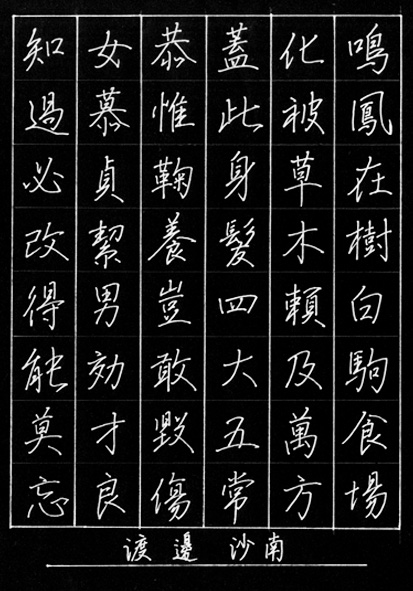 鳴鳳在樹白駒食場
化被草木頼及萬方
蓋此身髮四大五常
恭惟鞠養豈敢毀傷
女慕貞絜男効才良
知過必改得能莫忘
渡邊沙南